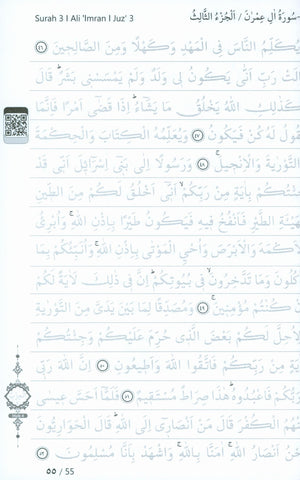 Surah 3 I Ali 'Imran I Juz' 3
سُورَةُ اٰلِ عِمْرٰنَ / اَلْجُزْءُ الثَّالِثُ
يُكَلِّمُ النَّاسَ فِي الْمَهْدِ وَكَهْلًا وَمِنَ الصَّالِحٖينَ ﴿٤٦﴾
الَتْ رَبِّ اَنّٰى يَكُونُ لٖي وَلَدٌ وَلَمْ يَمْسَسْنٖي بَشَرٌؕ قَالَ
كَذٰلِكِ اللّٰهُ يَخْلُقُ مَا يَشَٓاءُؕ اِذَا قَضٰٓى اَمْرًا فَاِنَّمَا
قُولُ لَهُ كُنْ فَيَكُونُ ﴿٤٧﴾ وَيُعَلِّمُهُ الْكِتَابَ وَالْحِكْمَةَ
التَّوْرٰيةَ وَالْاِنْجٖيلَۚ ﴿٤٨﴾ وَرَسُولًا اِلٰى بَنٖٓي اِسْرَٓائٖلَ اَنّٖي قَدْ
ئْتُكُمْ بِاٰيَةٍ مِنْ رَبِّكُمْۙ اَنّٖٓي اَخْلُقُ لَكُمْ مِنَ الطّٖينِ
هَيْـَٔةِ الطَّيْرِ فَاَنْفُخُ فٖيهِ فَيَكُونُ طَيْرًا بِاِذْنِ اللّٰهِۚ وَاُبْرِئُ
لْاَكْمَهَ وَالْاَبْرَصَ وَاُحْيِ الْمَوْتٰى بِاِذْنِ اللّٰهِۚ وَاُنَبِّئُكُمْ بِمَا
أْكُلُونَ وَمَا تَدَّخِرُونَۙ فٖي بُيُوتِكُمْؕ اِنَّ فٖي ذٰلِكَ لَاٰيَةً لَكُمْ
نْ كُنْتُمْ مُؤْمِنٖينَۚ ﴿٤٩﴾ وَمُصَدِّقًا لِمَا بَيْنَ يَدَيَّ مِنَ التَّوْرٰيةِ
لِاُحِلَّ لَكُمْ بَعْضَ الَّذٖي حُرِّمَ عَلَيْكُمْ وَجِئْتُكُمْ
يَةٍ مِنْ رَبِّكُمْ فَاتَّقُوا اللّٰهَ وَاَطٖيعُونِ ﴿٥٠﴾ اِنَّ اللّٰهَ رَبّٖي
رَبُّكُمْ فَاعْبُدُوهُؕ هٰذَا صِرَاطٌ مُسْتَقٖيمٌ ﴿٥١﴾ فَلَمَّٓا اَحَسَّ عٖيسٰى
نْهُمُ الْكُفْرَ قَالَ مَنْ اَنْصَارٖٓي اِلَى اللّٰهِؕ قَالَ الْحَوَارِيُّونَ
حْنُ اَنْصَارُ اللّٰهِۚ اٰمَنَّا بِاللّٰهِۚ وَاشْهَدْ بِاَنَّا مُسْلِمُونَ ﴿٥٢﴾
٥٥ / 55